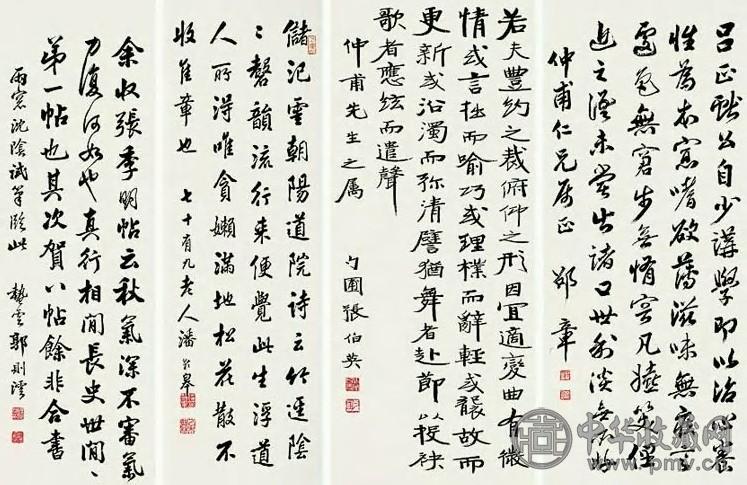 呂正獻公自少講學即以治心養
性為本寡嗜欲薄滋味無疾言
遽色無窘步無惰容凡嬉笑俚
近之語未嘗出諸口世利淡無所好
仲甫仁兄屬正 邵章
若夫豐約之裁俯仰之形因宜適變曲有微
情或言拙而喻巧或理樸而辭輕或襲故而
更新或沿濁而弥清譬猶舞者赴節以投袂
歌者應絃而遣聲
仲甫先生之屬
勺圃張伯英
儲汜雲朝陽道院詩云竹遲陰
〻磬韻流行來便覺此生浮道
人所得唯貪嬾滿地松花散不
收隹章也 七十有九老人潘齡皋
余收張季明帖云秋氣深不審氣
力復何如也真行相間長史世間〻
第一帖也其次賀八帖餘非合書
雨窓沈陰試筆臨此 蟄雲郭則澐
中华收藏网
www.pmv.cn